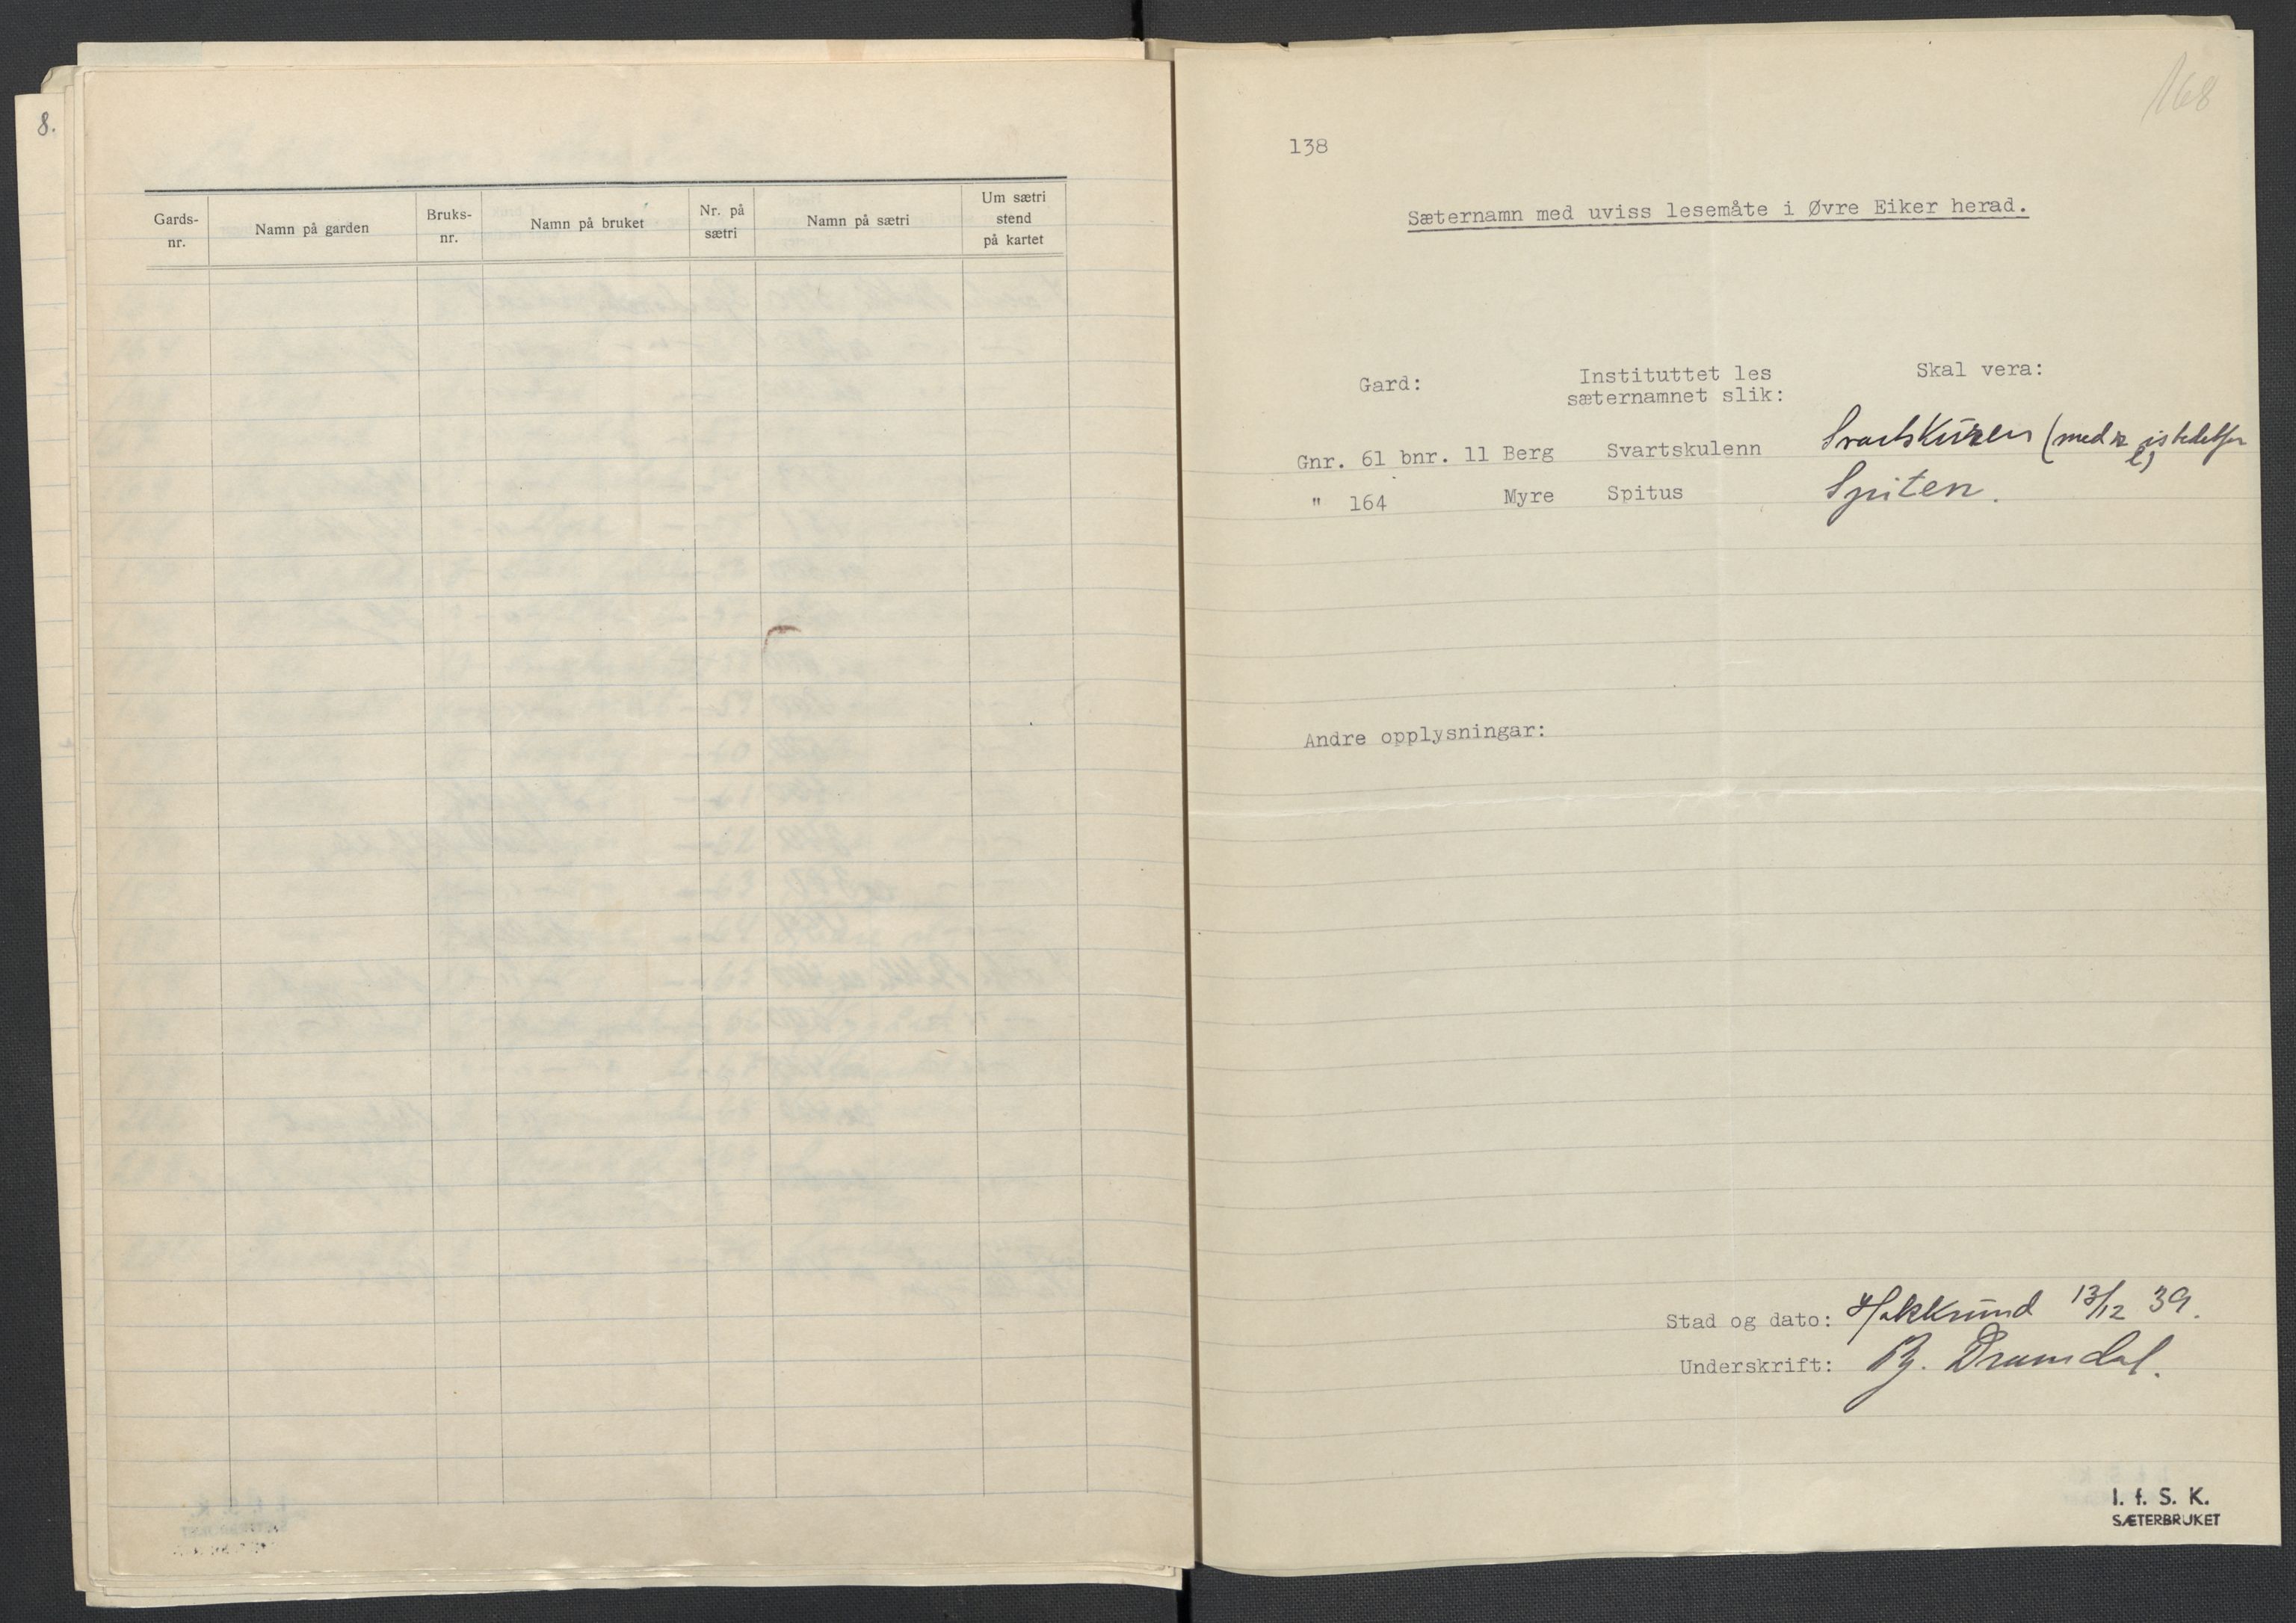 8.
Gards-nr. Namn på garden Bruks-nr. Namn på bruket Nr. på sætri Namn på sætri Um sætri stend på kartet
168
138
Sæternamn med uviss lesemåte i Øvre Eiker herad.
Gard: Instituttet les sæternamnet slik: Skal vera:
Gnr. 61 bnr. 11 Berg Svartskulenn Svartskuren (med r istedetfor l)
" 164 Myre Spitus Spiten.
Andre opplysningar:
Stad og dato: Hokksund 13/12 39.
Underskrift: B. Dramdal.
I. f. S. K.
SÆTERBRUKET